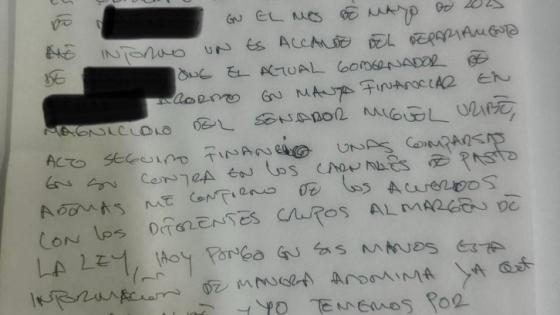 DE EN EL MES DE MAYO DE 2025
ME INFORMO UN EX ALCALDE DEL DEPARTAMENTO
DE QUE EL ACTUAL GOBERNADOR DE
ACORDO EN MANTA FINANCIAR EN
MAGNICIDIO DEL SENADOR MIGUEL URIBE,
ACTO SEGUIDO FINANCIO UNAS COMPARSAS
EN SU CONTRA EN LOS CARNAVALES DE PASTO
ADEMAS ME CONFIRMO DE LOS ACUERDOS
CON LOS DIFERENTES GRUPOS AL MARGEN DE
LA LEY, HOY PONGO EN SUS MANOS ESTA
INFORMACION DE MANERA ANONIMA YA QUE
Y YO TEMEMOS POR